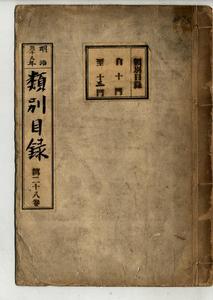 類別目録
自十門
至十三門
明治
三十五年
類別目録
第二十八巻